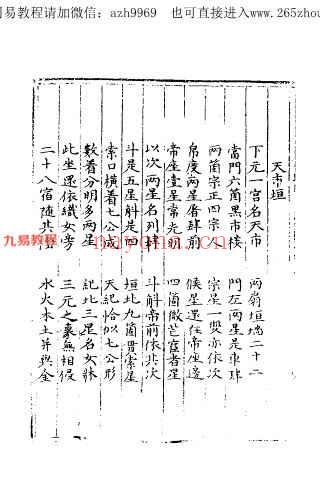 易教程请加微信：azh9969 也可直接进入www.265zhou
天市垣
下元一宮名天市 兩扇垣墻二十二
當門六箇黑市樓 門左兩星是車肆
兩箇宗正四宗人 宗星一雙亦依次
帛度兩星屠肆前 候星還在帝座邊
帝座壹星常光明 四箇微茫宦者星
以次兩星名列肆 斗斛帝前依其次
斗是五星斛是四 垣北九箇貫索星
索口橫着七公成 天紀恰似七公形
數着分明多兩星 紀北三星名女牀
此坐還依織女旁 三元之象無相侵
二十八宿隨其 水火木土并與金
九易教程